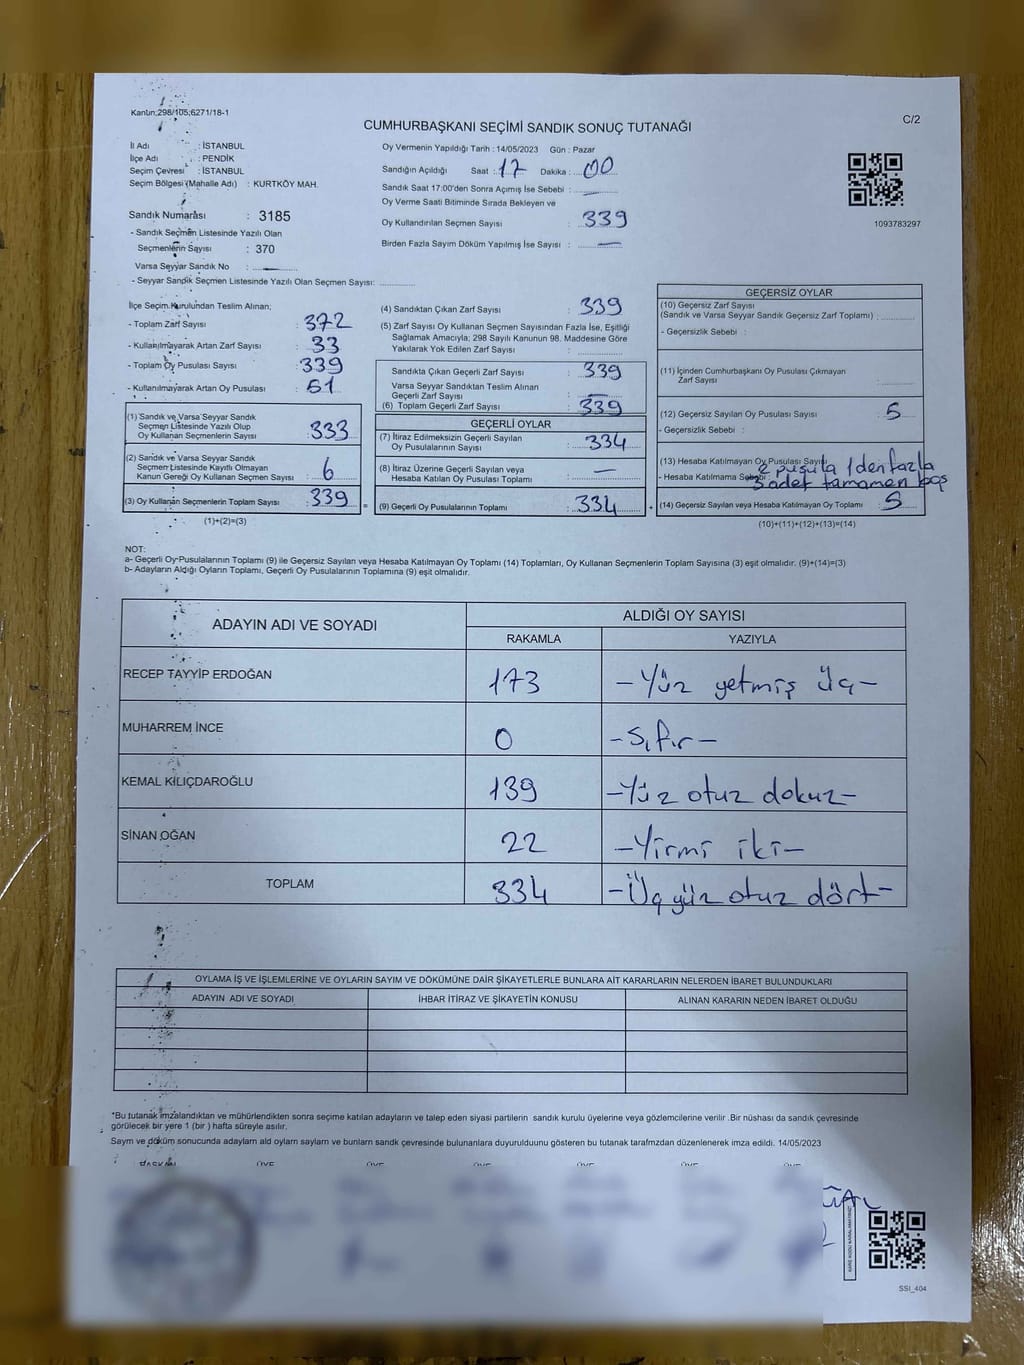 Kanun:298/105;6271/18-1
C/2
CUMHURBAŞKANI SEÇİMİ SANDIK SONUÇ TUTANAĞI
İl Adı : İSTANBUL
İlçe Adı : PENDİK
Seçim Çevresi : İSTANBUL
Seçim Bölgesi (Mahalle Adı) : KURTKÖY MAH.
Sandık Numarası : 3185
- Sandık Seçmen Listesinde Yazılı Olan
Seçmenlerin Sayısı : 370
Varsa Seyyar Sandık No : —
- Seyyar Sandık Seçmen Listesinde Yazılı Olan Seçmen Sayısı:
Oy Vermenin Yapıldığı Tarih : 14/05/2023 Gün : Pazar
Sandığın Açıldığı Saat : 17 Dakika : 00
Sandık Saat 17:00'den Sonra Açımış İse Sebebi : —
Oy Verme Saati Bitiminde Sırada Bekleyen ve
Oy Kullandırılan Seçmen Sayısı : 339
Birden Fazla Sayım Döküm Yapılmış İse Sayısı : —
1093783297
İlçe Seçim Kurulundan Teslim Alınan;
- Toplam Zarf Sayısı : 372
- Kullanılmayarak Artan Zarf Sayısı : 33
- Toplam Oy Pusulası Sayısı : 339
- Kullanılmayarak Artan Oy Pusulası : 61
(1) Sandık ve Varsa Seyyar Sandık
Seçmen Listesinde Yazılı Olup
Oy Kullanan Seçmenlerin Sayısı : 333
(2) Sandık ve Varsa Seyyar Sandık
Seçmen Listesinde Kayıtlı Olmayan
Kanun Gereği Oy Kullanan Seçmen Sayısı : 6
(3) Oy Kullanan Seçmenlerin Toplam Sayısı : 339
(1)+(2)=(3)
(4) Sandıktan Çıkan Zarf Sayısı : 339
(5) Zarf Sayısı Oy Kullanan Seçmen Sayısından Fazla İse, Eşitliği
Sağlamak Amacıyla; 298 Sayılı Kanunun 98. Maddesine Göre
Yakılarak Yok Edilen Zarf Sayısı :
Sandıkta Çıkan Geçerli Zarf Sayısı : 339
Varsa Seyyar Sandıktan Teslim Alınan
Geçerli Zarf Sayısı : —
(6) Toplam Geçerli Zarf Sayısı : 339
GEÇERLİ OYLAR
(7) İtiraz Edilmeksizin Geçerli Sayılan
Oy Pusulalarının Sayısı : 334
(8) İtiraz Üzerine Geçerli Sayılan veya
Hesaba Katılan Oy Pusulası Toplamı : —
(9) Geçerli Oy Pusulalarının Toplamı : 334
GEÇERSİZ OYLAR
(10) Geçersiz Zarf Sayısı
(Sandık ve Varsa Seyyar Sandık Geçersiz Zarf Toplamı) :
- Geçersizlik Sebebi :
(11) İçinden Cumhurbaşkanı Oy Pusulası Çıkmayan
Zarf Sayısı :
(12) Geçersiz Sayılan Oy Pusulası Sayısı : 5
- Geçersizlik Sebebi :
(13) Hesaba Katılmayan Oy Pusulası Sayısı
2 pusula 1den fazla
- Hesaba Katılmama Sebebi :
3 adet tamamen boş
(14) Geçersiz Sayılan veya Hesaba Katılmayan Oy Toplamı : 5
(10)+(11)+(12)+(13)=(14)
NOT:
a- Geçerli Oy Pusulalarının Toplamı (9) ile Geçersiz Sayılan veya Hesaba Katılmayan Oy Toplamı (14) Toplamları, Oy Kullanan Seçmenlerin Toplam Sayısına (3) eşit olmalıdır. (9)+(14)=(3)
b- Adayların Aldığı Oyların Toplamı, Geçerli Oy Pusulalarının Toplamına (9) eşit olmalıdır.
ADAYIN ADI VE SOYADI
ALDIĞI OY SAYISI
RAKAMLA YAZIYLA
RECEP TAYYİP ERDOĞAN 173 -Yüz yetmiş üç-
MUHARREM İNCE 0 -Sıfır-
KEMAL KILIÇDAROĞLU 139 -Yüz otuz dokuz-
SİNAN OĞAN 22 -Yirmi iki-
TOPLAM 334 -Üç yüz otuz dört-
OYLAMA İŞ VE İŞLEMLERİNE VE OYLARIN SAYIM VE DÖKÜMÜNE DAİR ŞİKAYETLERLE BUNLARA AİT KARARLARIN NELERDEN İBARET BULUNDUKLARI
ADAYIN ADI VE SOYADI İHBAR İTİRAZ VE ŞİKAYETİN KONUSU ALINAN KARARIN NEDEN İBARET OLDUĞU
*Bu tutanak imzalandıktan ve mühürlendikten sonra seçime katılan adayların ve talep eden siyasi partilerin sandık kurulu üyelerine veya gözlemcilerine verilir .Bir nüshası da sandık çevresinde
görülecek bir yere 1 (bir ) hafta süreyle asılır.
Sayım ve döküm sonucunda adayların ald oyların sayların ve bunların sandk çevresinde bulunanlara duyurulduunu gösteren bu tutanak tarafmzdan düzenlenerek imza edildi. 14/05/2023
BAŞKAN ÜYE ÜYE ÜYE ÜYE ÜYE ÜYE
SSI_404